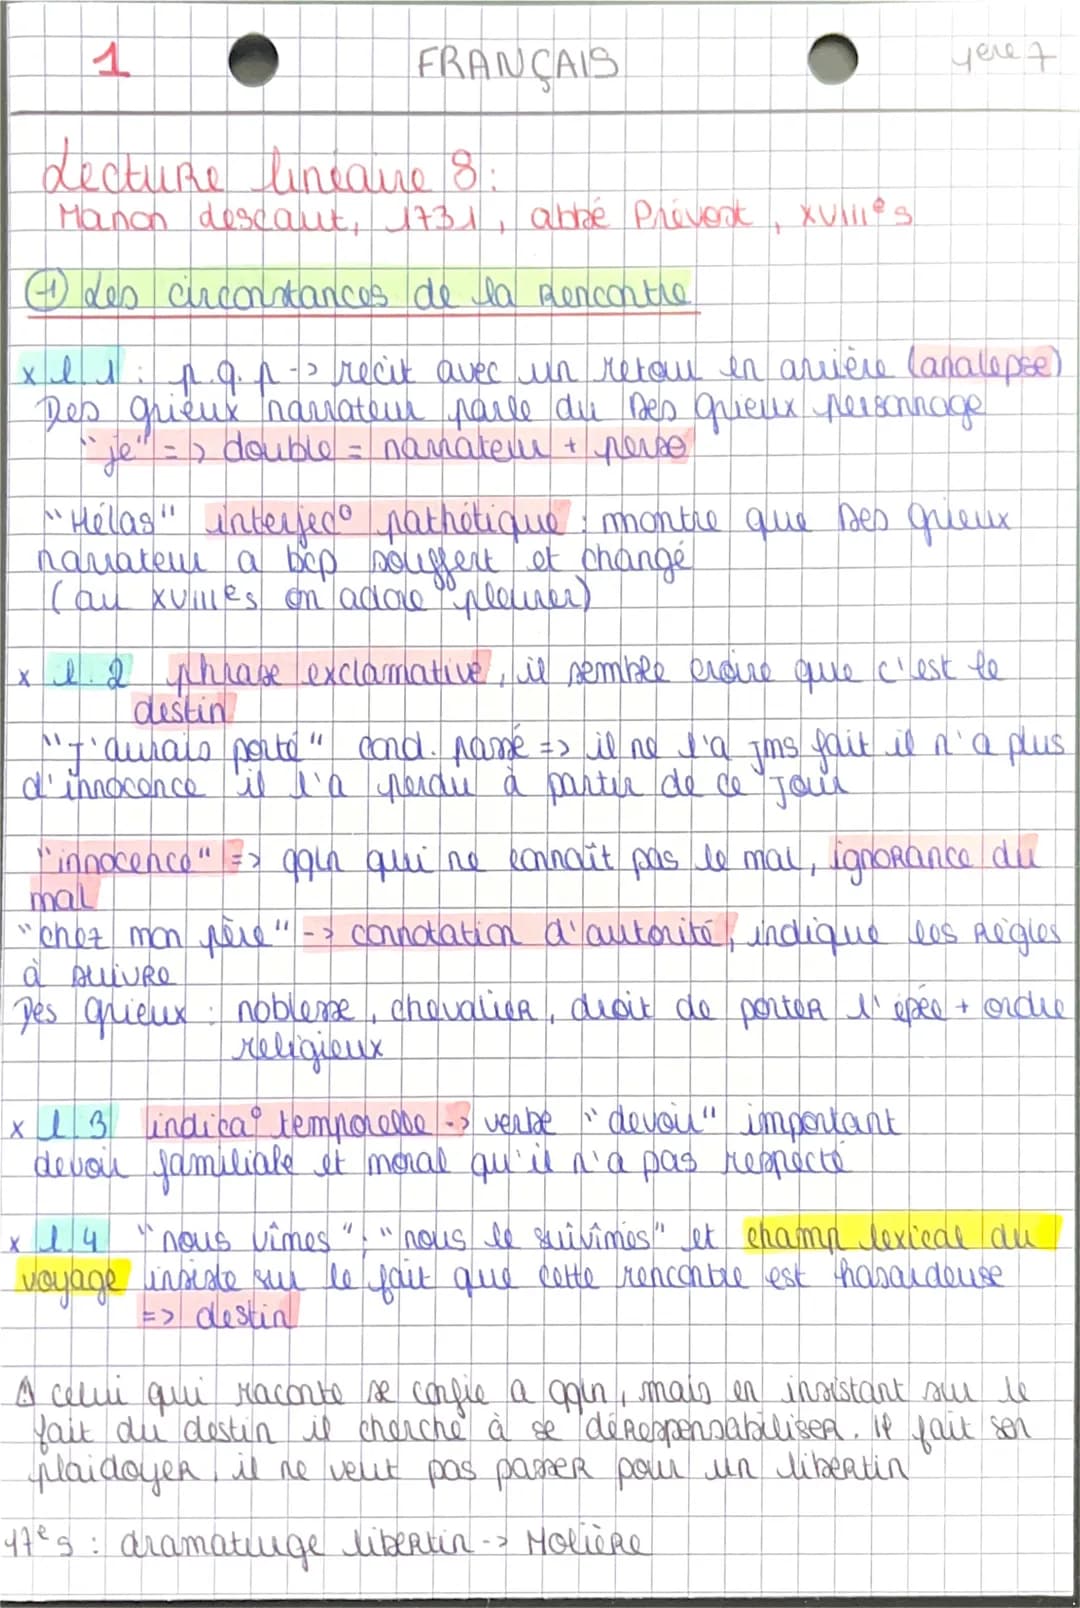 1 FRANÇAIS 1ere 7
Lecture linéaire 8:
Manon Lescaut, 1731, abbé Prévost, XVIIIe s
① Les circonstances de la Rencontre
x l. 1 : p.q.p -> récit avec un retour en arrière (analepse)
Des grieux narrateur parle du Des grieux personnage
"je" => double = narrateur + perso
"Hélas" interjec° pathétique : montre que Des grieux
narrateur a bcp souffert et changé
(au XVIIIes on adore "pleurer)
x l. 2 phrase exclamative, il semble croire que c'est le
destin
"J'aurais porté" cond. passé => il ne l'a jms fait il n'a plus
d'innocence il l'a perdu à partir de ce jour
"innocence" => qqln qui ne connaît pas le mal, ignorance du
mal
"chez mon père" -> connotation d'autorité, indique les Règles
à suivre
Des grieux : noblesse, chevalier, droit de porter l'épée + ordre
religieux
x l 3 indica° temporelle -> verbe "devoir" important
devoir familiale et moral qu'il n'a pas respecté
x l. 4 "nous vîmes", "nous le suivîmes" et champ lexical du
voyage insiste sur le fait que cette rencontre est hasardeuse
=> destin
⚠ celui qui raconte se confie a qqln, mais en insistant sur le
fait du destin il cherche à se déresponsabiliser. Il fait son
plaidoyer, il ne veut pas passer pour un libertin
17e s : dramaturge libertin -> Molière